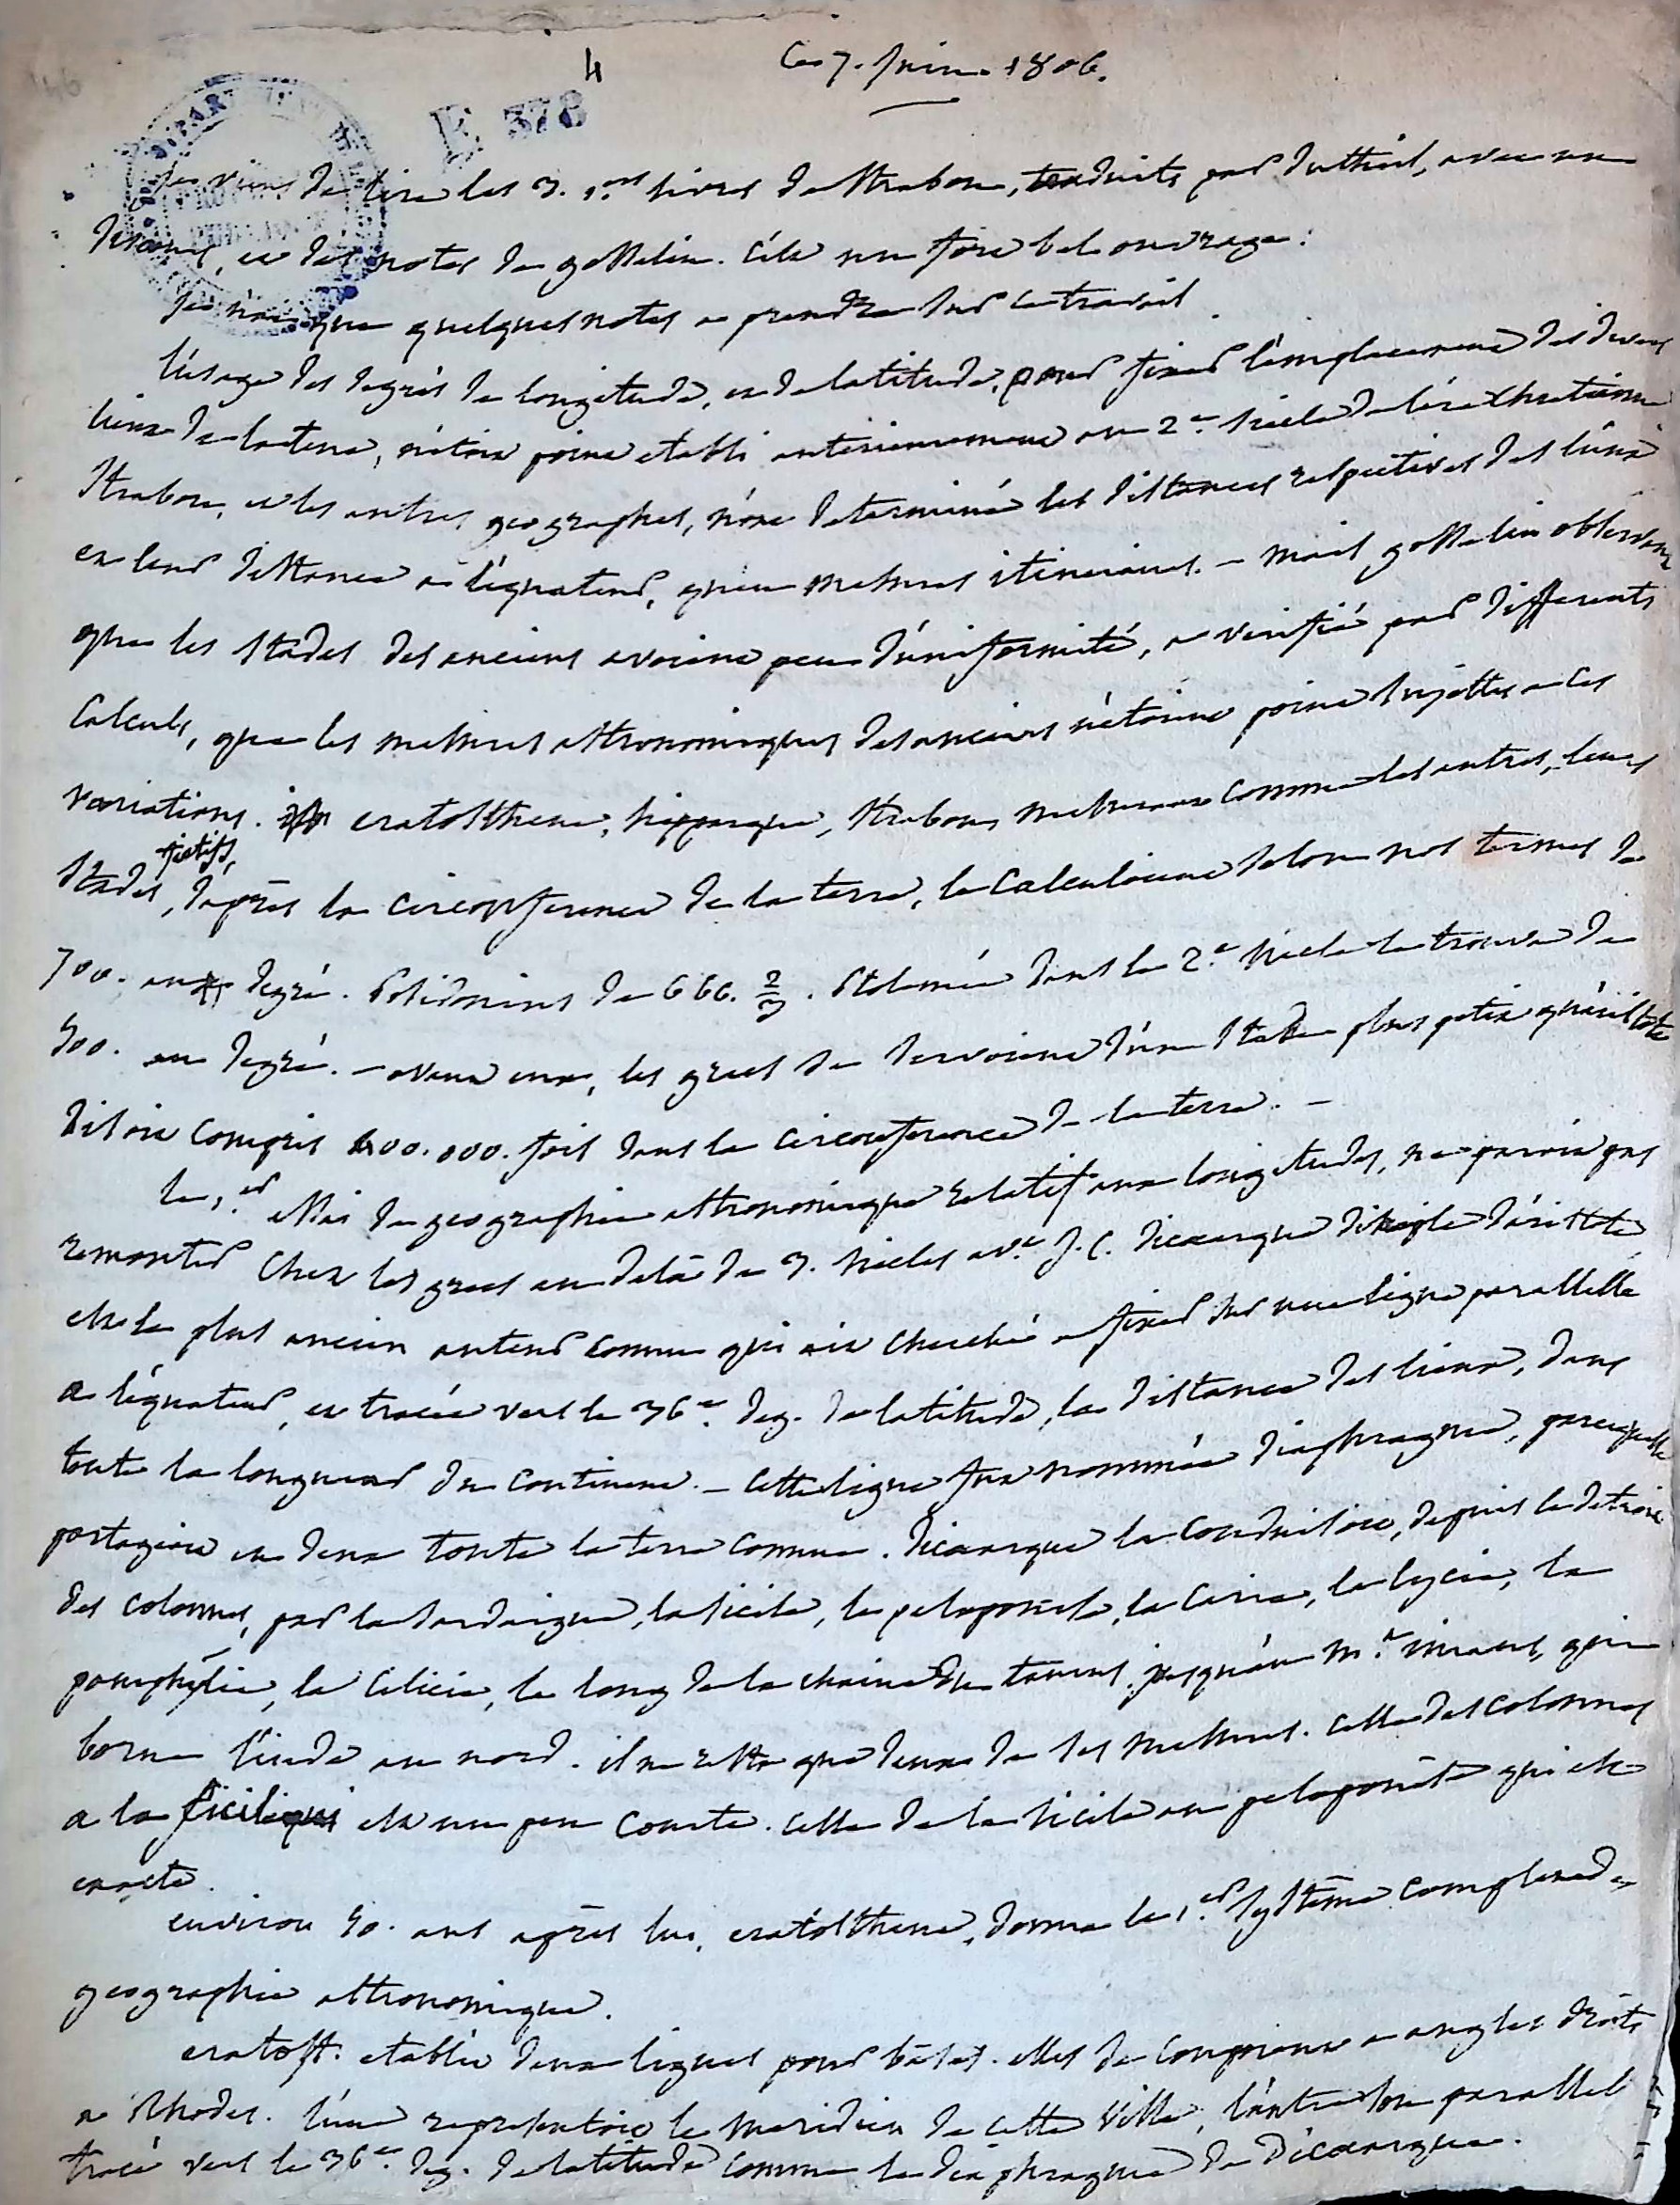 4
Ce 7. juin 1806.
E 378
je viens de lire les 3. 1ers livres de Strabon, traduits par dutheil, avec un
discours, et des notes de gosselin. c'est un fort bel ouvrage.
je n'ai que quelques notes a prendre sur ce travail
l'usage des degrés de longitude, et de latitude, pour fixer l'emplacement des divers
lieux de la terre, n'étoit point etabli anterieurement au 2e. siecle de l'ère chretienne
Strabon, et les autres geographes, n'ont determiné les distances respectives des lieux
et leur distance a l'équateur, qu'en mesures itineraires. – mais gosselin observant
que les stades des anciens avoient peu d'uniformité, a verifié par differents
calculs, que les mesures astronomiques des anciens n'étoient point sujettes a ces
variations. eratosthene, hipparque, Strabon, mesuroient comme les autres, leurs
stades fictifs, d'après la circonference de la terre, le calculoient selon nos termes de
700. au degré. Posidonius de 666. 2/3. Ptolemée dans le 2e. siecle le trouva de
500. au degré. – avant eux, les grecs se servoient d'un stade plus petit qu'aristote
disoit compris 400.000. fois dans la circonference de la terre. –
le 1er essai de geographie astronomique relatif aux longitudes, ne paroit pas
remonter chez les grecs au delà de 3. siecles avt J. C. dicearque disciple d'aristote
est le plus ancien auteur connu qui ait cherché a fixer sur une ligne parallelle
a l'équateur, et tracée vers le 36e. deg. de latitude, la distance des lieux, dans
toute la longueur du continent. – cette ligne fut nommée diaphragme, parcequ'elle
partageoit en deux toute la terre connue. dicearque la conduisoit, depuis le detroit
des colonnes, par la sardaigne, la sicile, le peloponese, la Carie, la lycie, la
pamphylie, la cilicie, le long de la chaine du taurus, jusqu'au mt. imaus, qui
borne l'inde au nord. il ne reste que deux de ses mesures. celle des colonnes
a la sicile qui est un peu courte. celle de la sicile au peloponese qui est
exacte.
environ 50. ans après lui, eratosthene, donna le 1er systême complet de
geographie astronomique.
eratost. etablit deux lignes pour bases. elles se coupoient a angles droits
a Rhodes. l'une representoit le meridien de cette ville, l'autre son parallele
tracé vers le 36e. deg. de latitude comme le diaphragme de Dicearque.